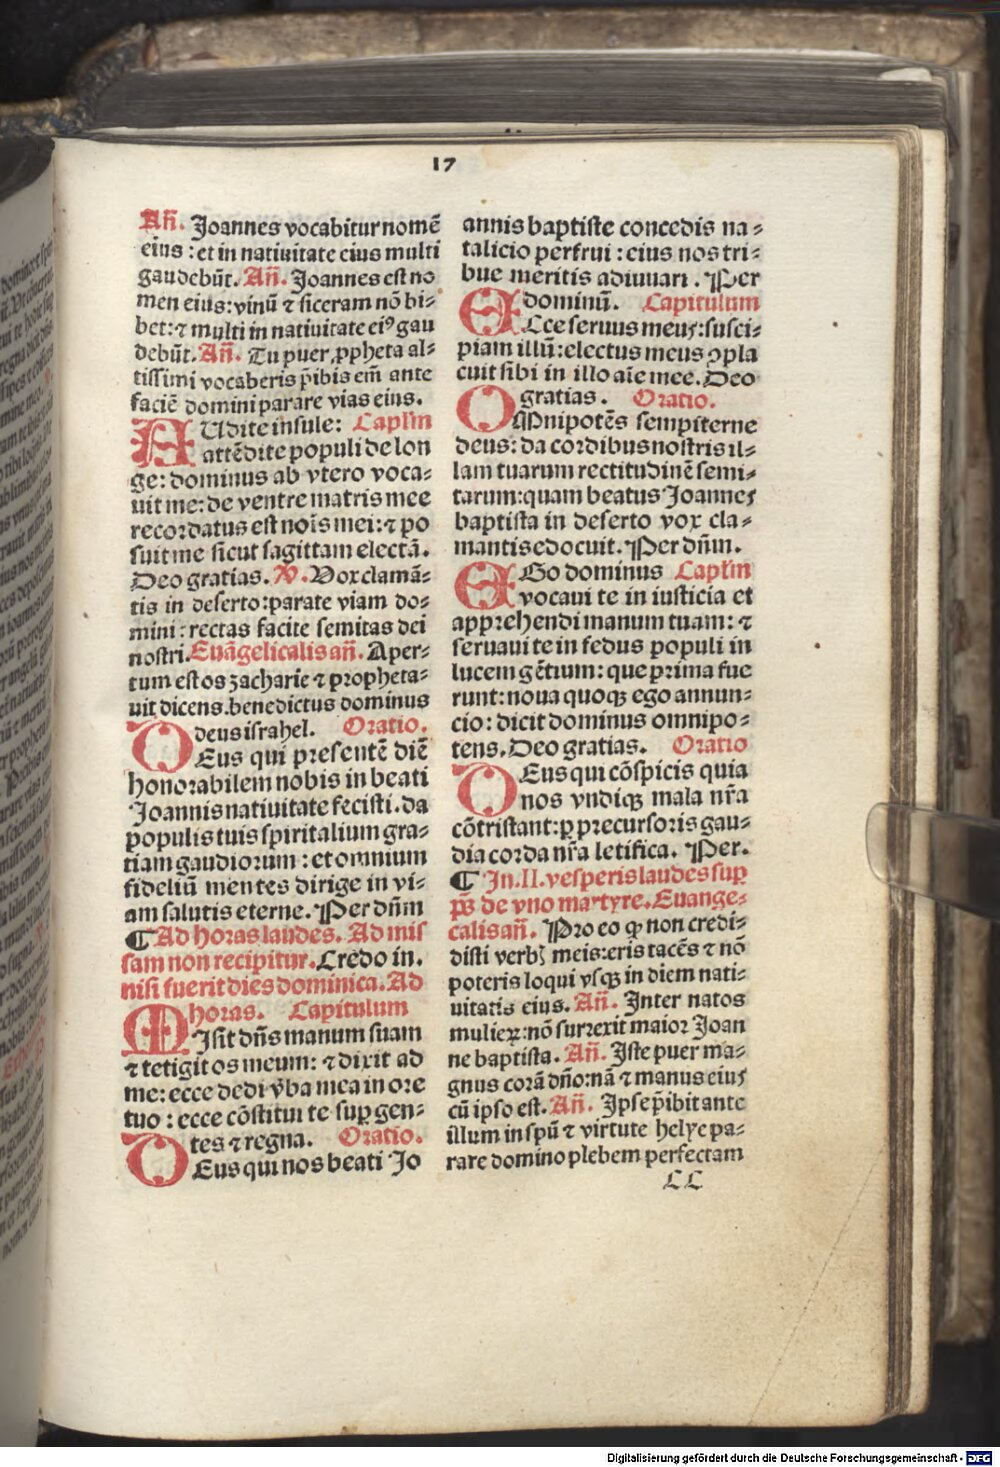 17
Añ. Joannes vocabitur nomē
eius : et in natiuitate eius multi
gaudebūt. Añ. Joannes est no
men eius: vinū ⁊ siceram nō bi⸗
bet: ⁊ multi in natiuitate eiꝰ gau
debūt. Añ. Tu puer ꝓpheta al⸗
tissimi vocaberis p̄ibis em̄ ante
faciē domini parare vias eius.
AUdite insule: Caplm̄
attēdite populi de lon
ge: dominus ab vtero voca⸗
uit me: de ventre matris mee
recordatus est nois mei: ⁊ po
suit me sicut sagittam electā.
Deo gratias. ℣. Vox clamā⸗
tis in deserto: parate viam do⸗
mini : rectas facite semitas dei
nostri. Euāgelicalis añ. Aper⸗
tum est os zacharie ⁊ propheta⸗
uit dicens. benedictus dominus
deus israhel. Oratio.
DEus qui presentē diē
honorabilem nobis in beati
Joannis natiuitate fecisti. da
populis tuis spiritalium gra⸗
tiam gaudiorum : et omnium
fideliū mentes dirige in vi⸗
am salutis eterne. Per dn̄m
¶ Ad horas laudes. Ad mis
sam non recipitur. Credo in.
nisi fuerit dies dominica. Ad
horas. Capitulum
MIsit dn̄s manum suam
⁊ tetigit os meum: ⁊ dixit ad
me: ecce dedi v̄ba mea in ore
tuo : ecce cōstitui te suꝑ gen⸗
tes ⁊ regna. Oratio.
DEus qui nos beati Jo
annis baptiste concedis na⸗
talicio perfrui : eius nos tri⸗
bue meritis adiuuari. Per
dominū. Capitulum
ECce seruus meus: susci⸗
piam illū: electus meus ꝯpla
cuit sibi in illo aīe mee. Deo
gratias. Oratio.
OMnipotēs sempiterne
deus: da cordibus nostris il⸗
lam tuarum rectitudinē semi⸗
tarum: quam beatus Joannes
baptista in deserto vox cla⸗
mantis edocuit. Per dn̄m.
EGo dominus Caplm̄
vocaui te in iusticia et
apprehendi manum tuam: ⁊
seruaui te in fedus populi in
lucem gētium: que prima fue
runt: noua quoqꝫ ego annun⸗
cio: dicit dominus omnipo⸗
tens. Deo gratias. Oratio
DEus qui cōspicis quia
nos vndiqꝫ mala nr̄a
cōtristant: ꝑ precursoris gau⸗
dia corda nr̄a letifica. Per.
¶ In .II. vesperis laudes suꝑ
ps̄ de vno martyre. Euange⸗
calis añ. Pro eo ꝙ non credi⸗
disti verbꝭ meis: eris tacēs ⁊ nō
poteris loqui vsqꝫ in diem nati⸗
uitatis eius. Añ. Inter natos
mulieꝝ: nō surrexit maior Joan
ne baptista. Añ. Iste puer ma⸗
gnus corā dn̄o: nā ⁊ manus eius
cū ipso est. Añ. Ipse p̄ibit ante
illum in spū ⁊ virtute helye pa⸗
rare domino plebem perfectam
LL
Digitalisierung gefördert durch die Deutsche Forschungsgemeinschaft - DFG